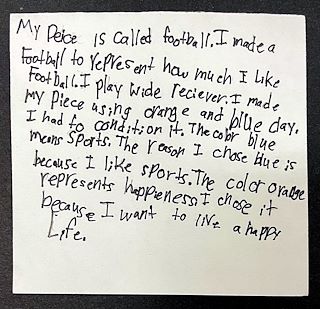 My Peice is called football. I made a
Football to represent how much I like
Football. I play wide reciever. I made
my piece using orange and blue clay.
I had to condition it. The color blue
means sports. The reason I chose blue is
because I like sports. The color orange
represents happeness. I chose it
because I want to live a happy
Life.